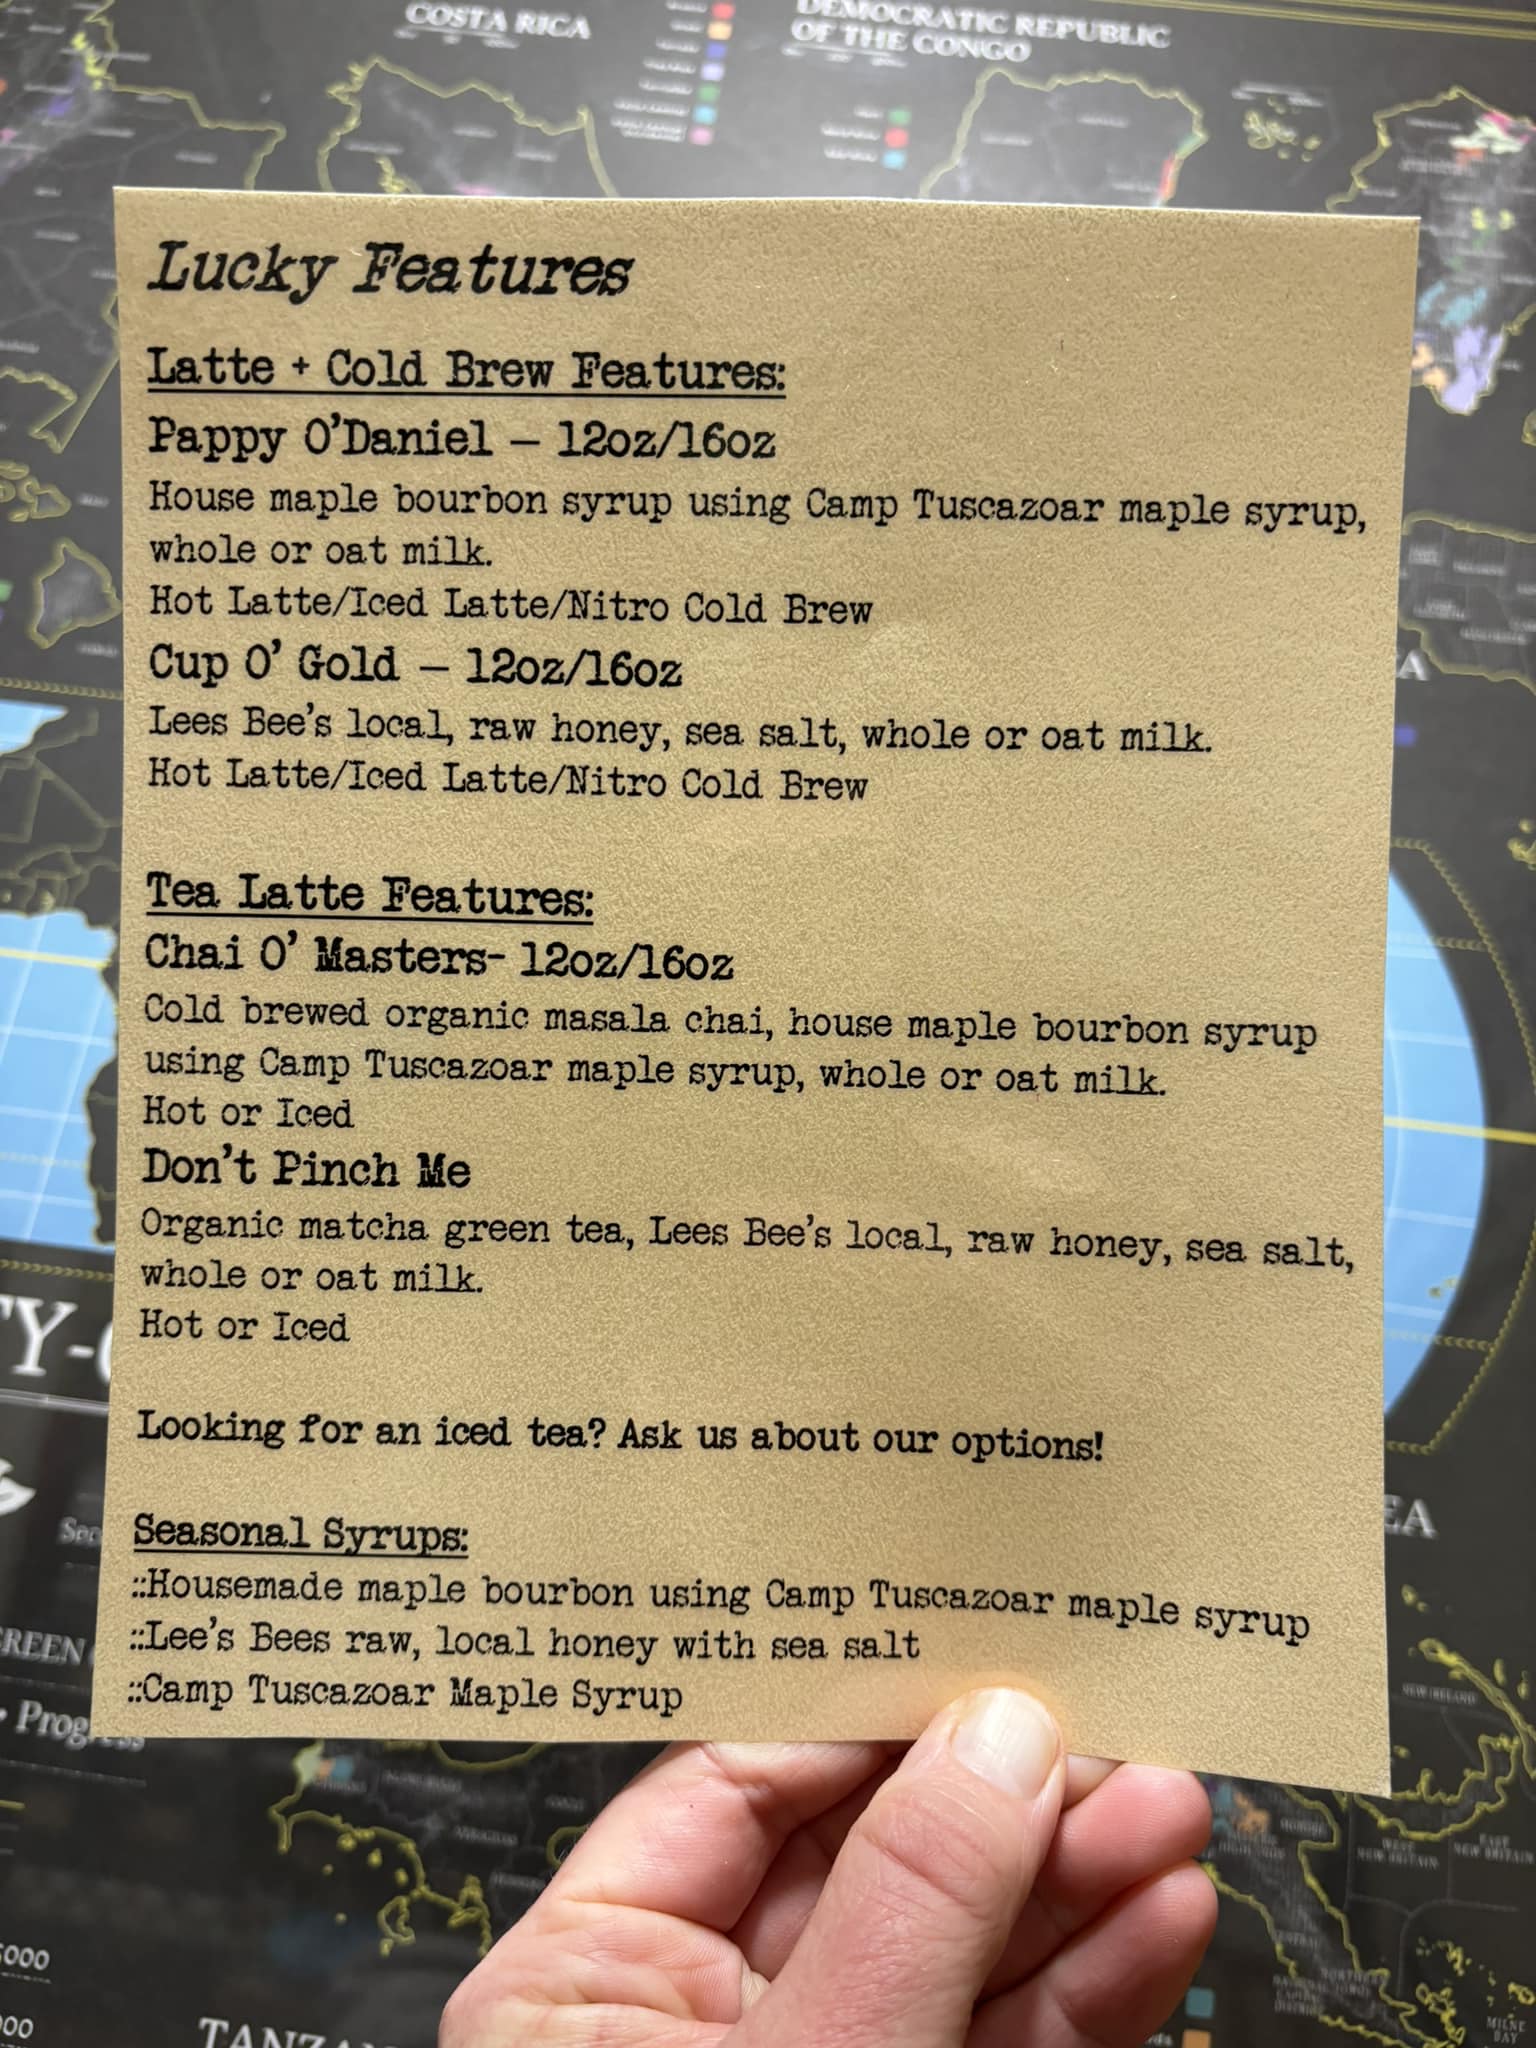 COSTA RICA
DEMOCRATIC REPUBLIC
OF THE CONGO
Lucky Features
Latte + Cold Brew Features:
Pappy O'Daniel — 12oz/16oz
House maple bourbon syrup using Camp Tuscazoar maple syrup,
whole or oat milk.
Hot Latte/Iced Latte/Nitro Cold Brew
Cup O' Gold — 12oz/16oz
Lees Bee's local, raw honey, sea salt, whole or oat milk.
Hot Latte/Iced Latte/Nitro Cold Brew
Tea Latte Features:
Chai O' Masters- 12oz/16oz
Cold brewed organic masala chai, house maple bourbon syrup
using Camp Tuscazoar maple syrup, whole or oat milk.
Hot or Iced
Don't Pinch Me
Organic matcha green tea, Lees Bee's local, raw honey, sea salt,
whole or oat milk.
Hot or Iced
Looking for an iced tea? Ask us about our options!
Seasonal Syrups:
::Housemade maple bourbon using Camp Tuscazoar maple syrup
::Lee's Bees raw, local honey with sea salt
::Camp Tuscazoar Maple Syrup
NEW IRELAND
WEST
NEW BRITAIN
EAST
NEW BRITAIN
MILNE
BAY